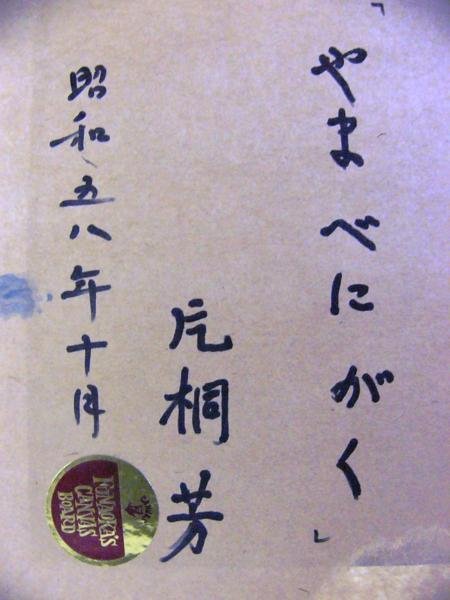 「やまべにがく」
片桐芳
昭和五八年十月
FUNAOKA'S
CANVAS
BOARD